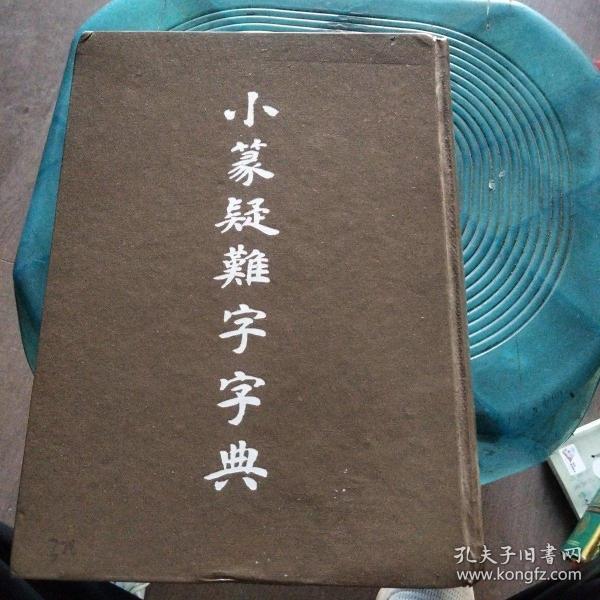 小篆疑難字字典
孔夫子旧書网
www.kongfz.com